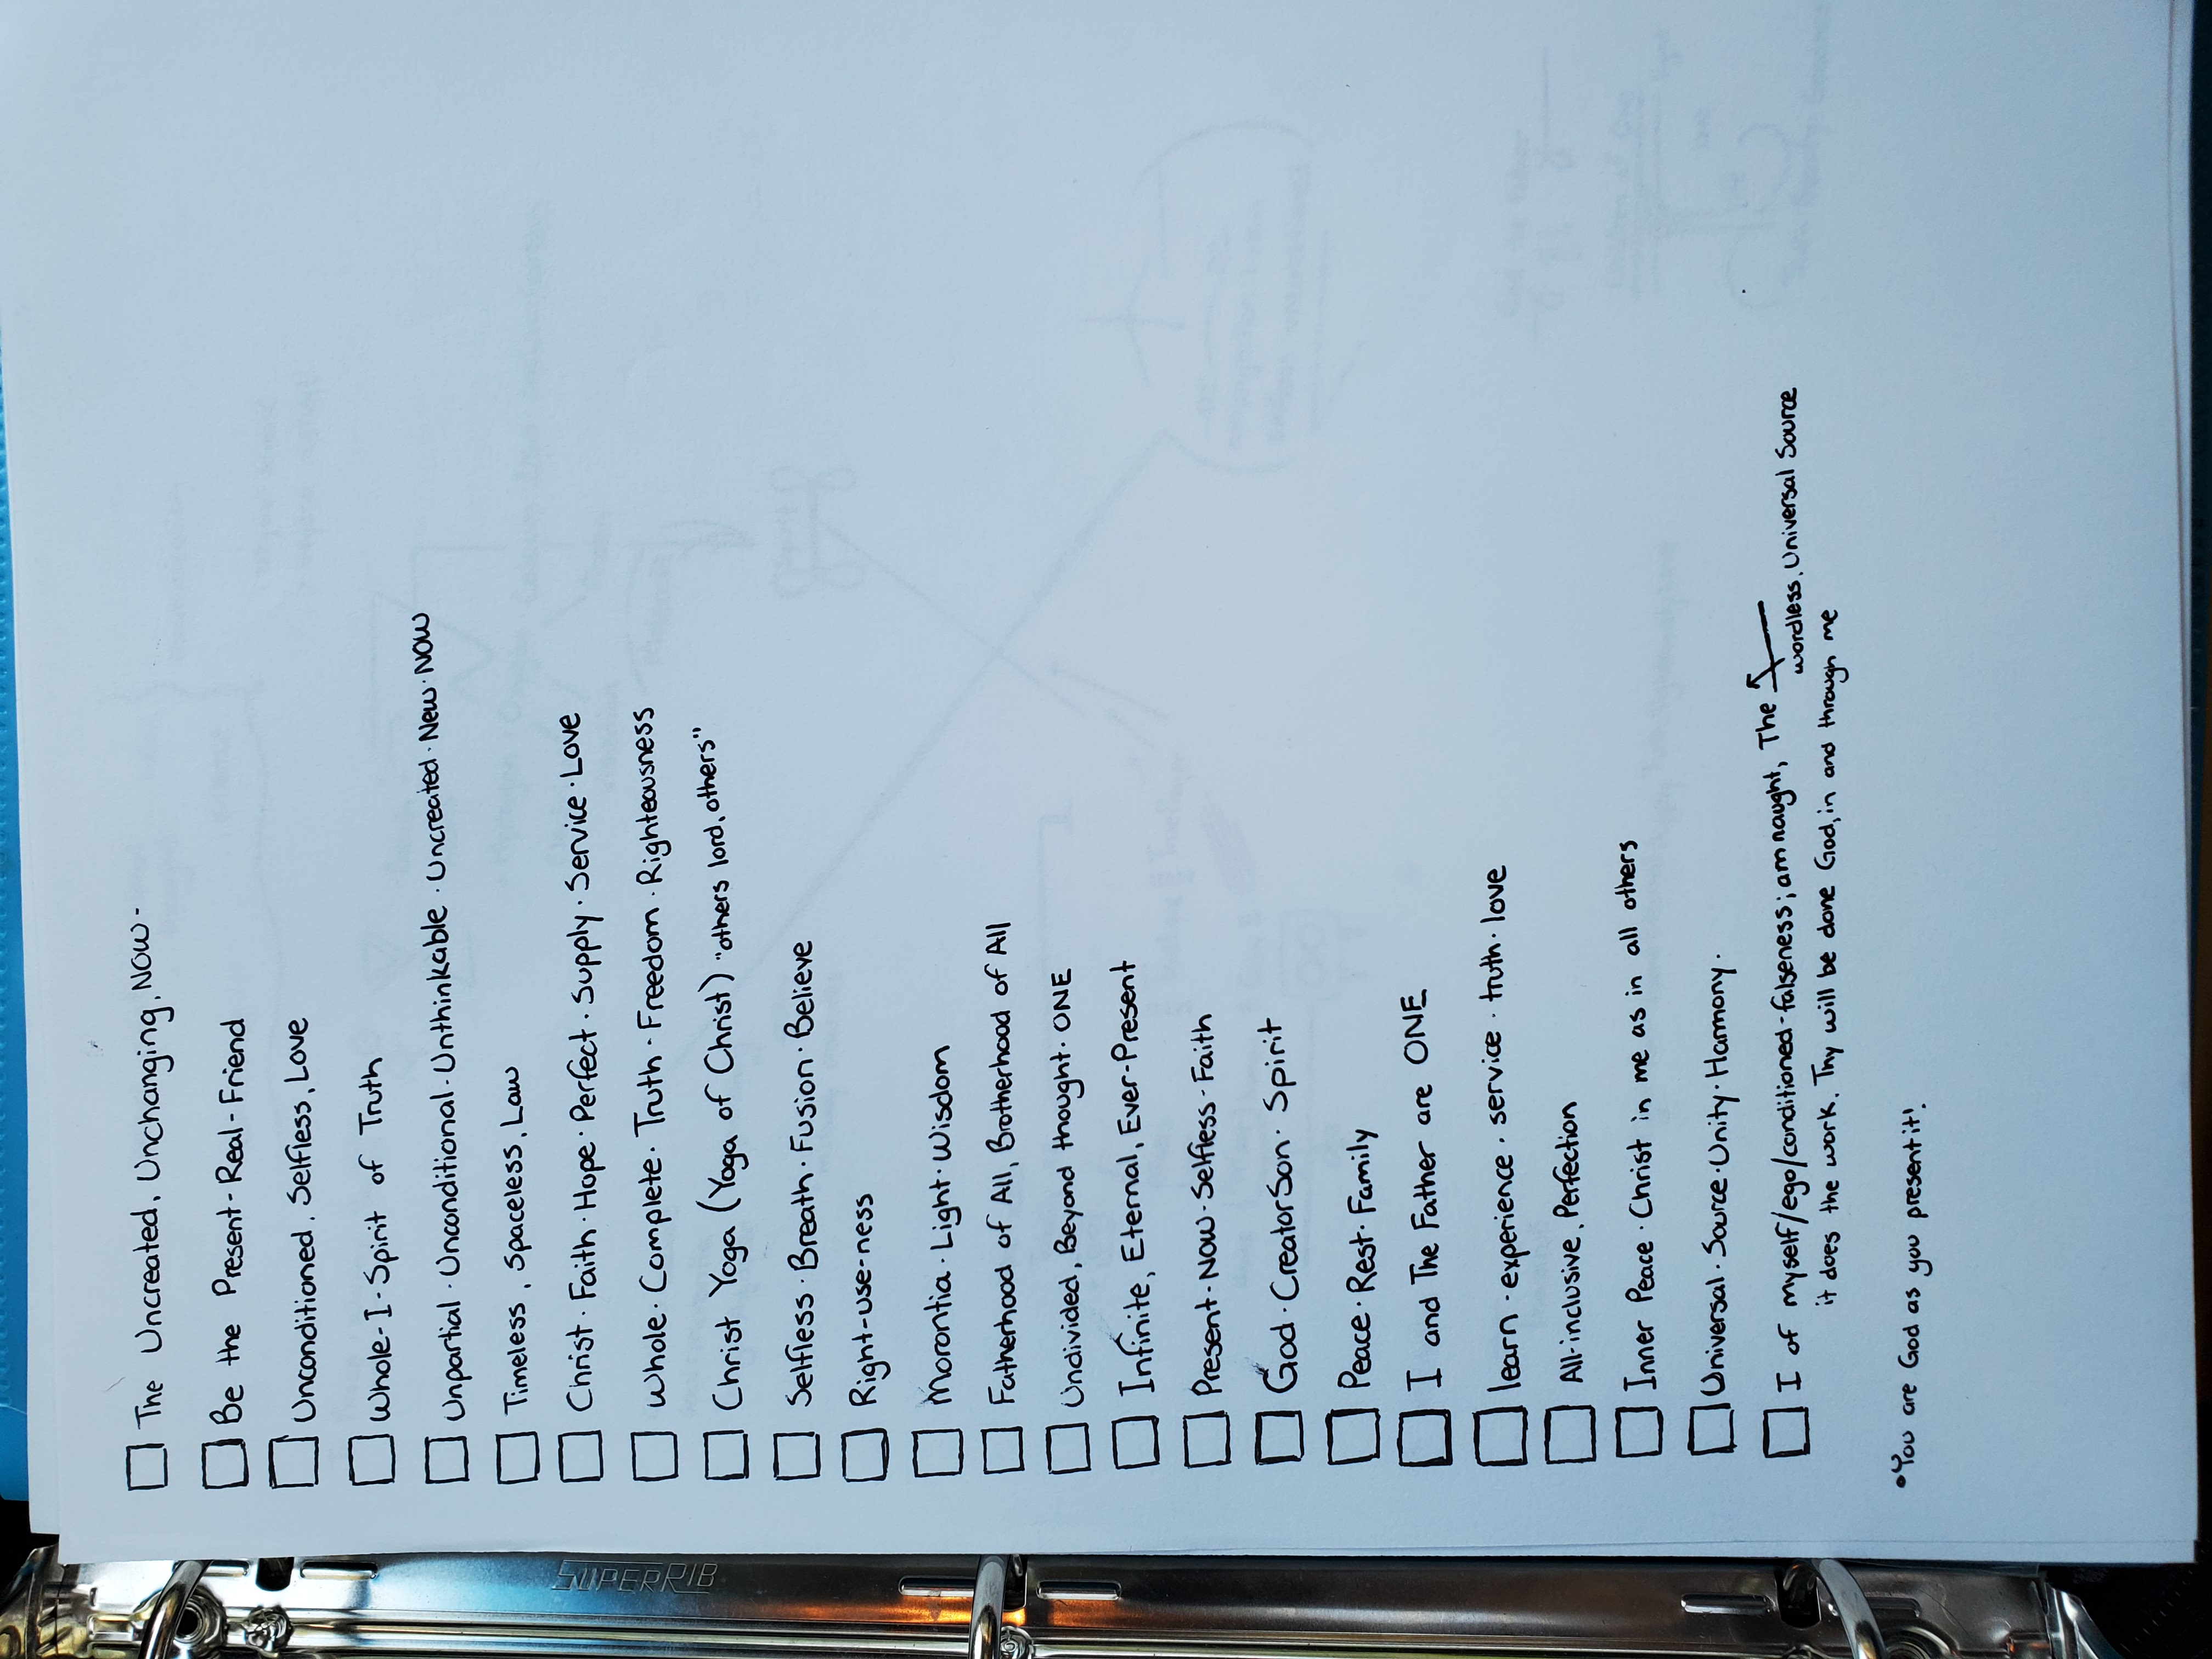 The Uncreated, Unchanging, NOW-
Be the Present-Real-Friend
Unconditioned, Selfless, Love
Whole-I-Spirit of Truth
Unpartial·Unconditional·Unthinkable·Uncreated·New·NOW
Timeless, Spaceless, Law
Christ·Faith·Hope·Perfect·Supply·Service·Love
Whole·Complete·Truth·Freedom·Righteousness
Christ Yoga (Yoga of Christ) "others lord, others"
Selfless·Breath·Fusion·Believe
Right-use-ness
Morontia·Light·Wisdom
Fatherhood of All, Brotherhood of All
Undivided, Beyond thought·ONE
Infinite, Eternal, Ever-Present
Present-NOW-Selfless-Faith
God·CreatorSon·Spirit
Peace·Rest·Family
I and The Father are ONE
learn·experience·service·truth·love
All-inclusive, Perfection
Inner Peace·Christ in me as in all others
Universal·Source·Unity·Harmony.
I of myself/ego/conditioned-falseness; am naught, The
wordless, Universal Source
it does the work. Thy will be done God, in and through me
•"You are God as you present it".
SUPERRIB